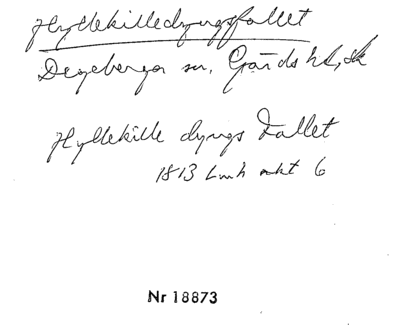 Hyllekilledyngsfallet
Degeberga sn, Gärds hd, Sk
Hyllekille dyngs Fallet
1813 Lmh akt 6
Nr 18873